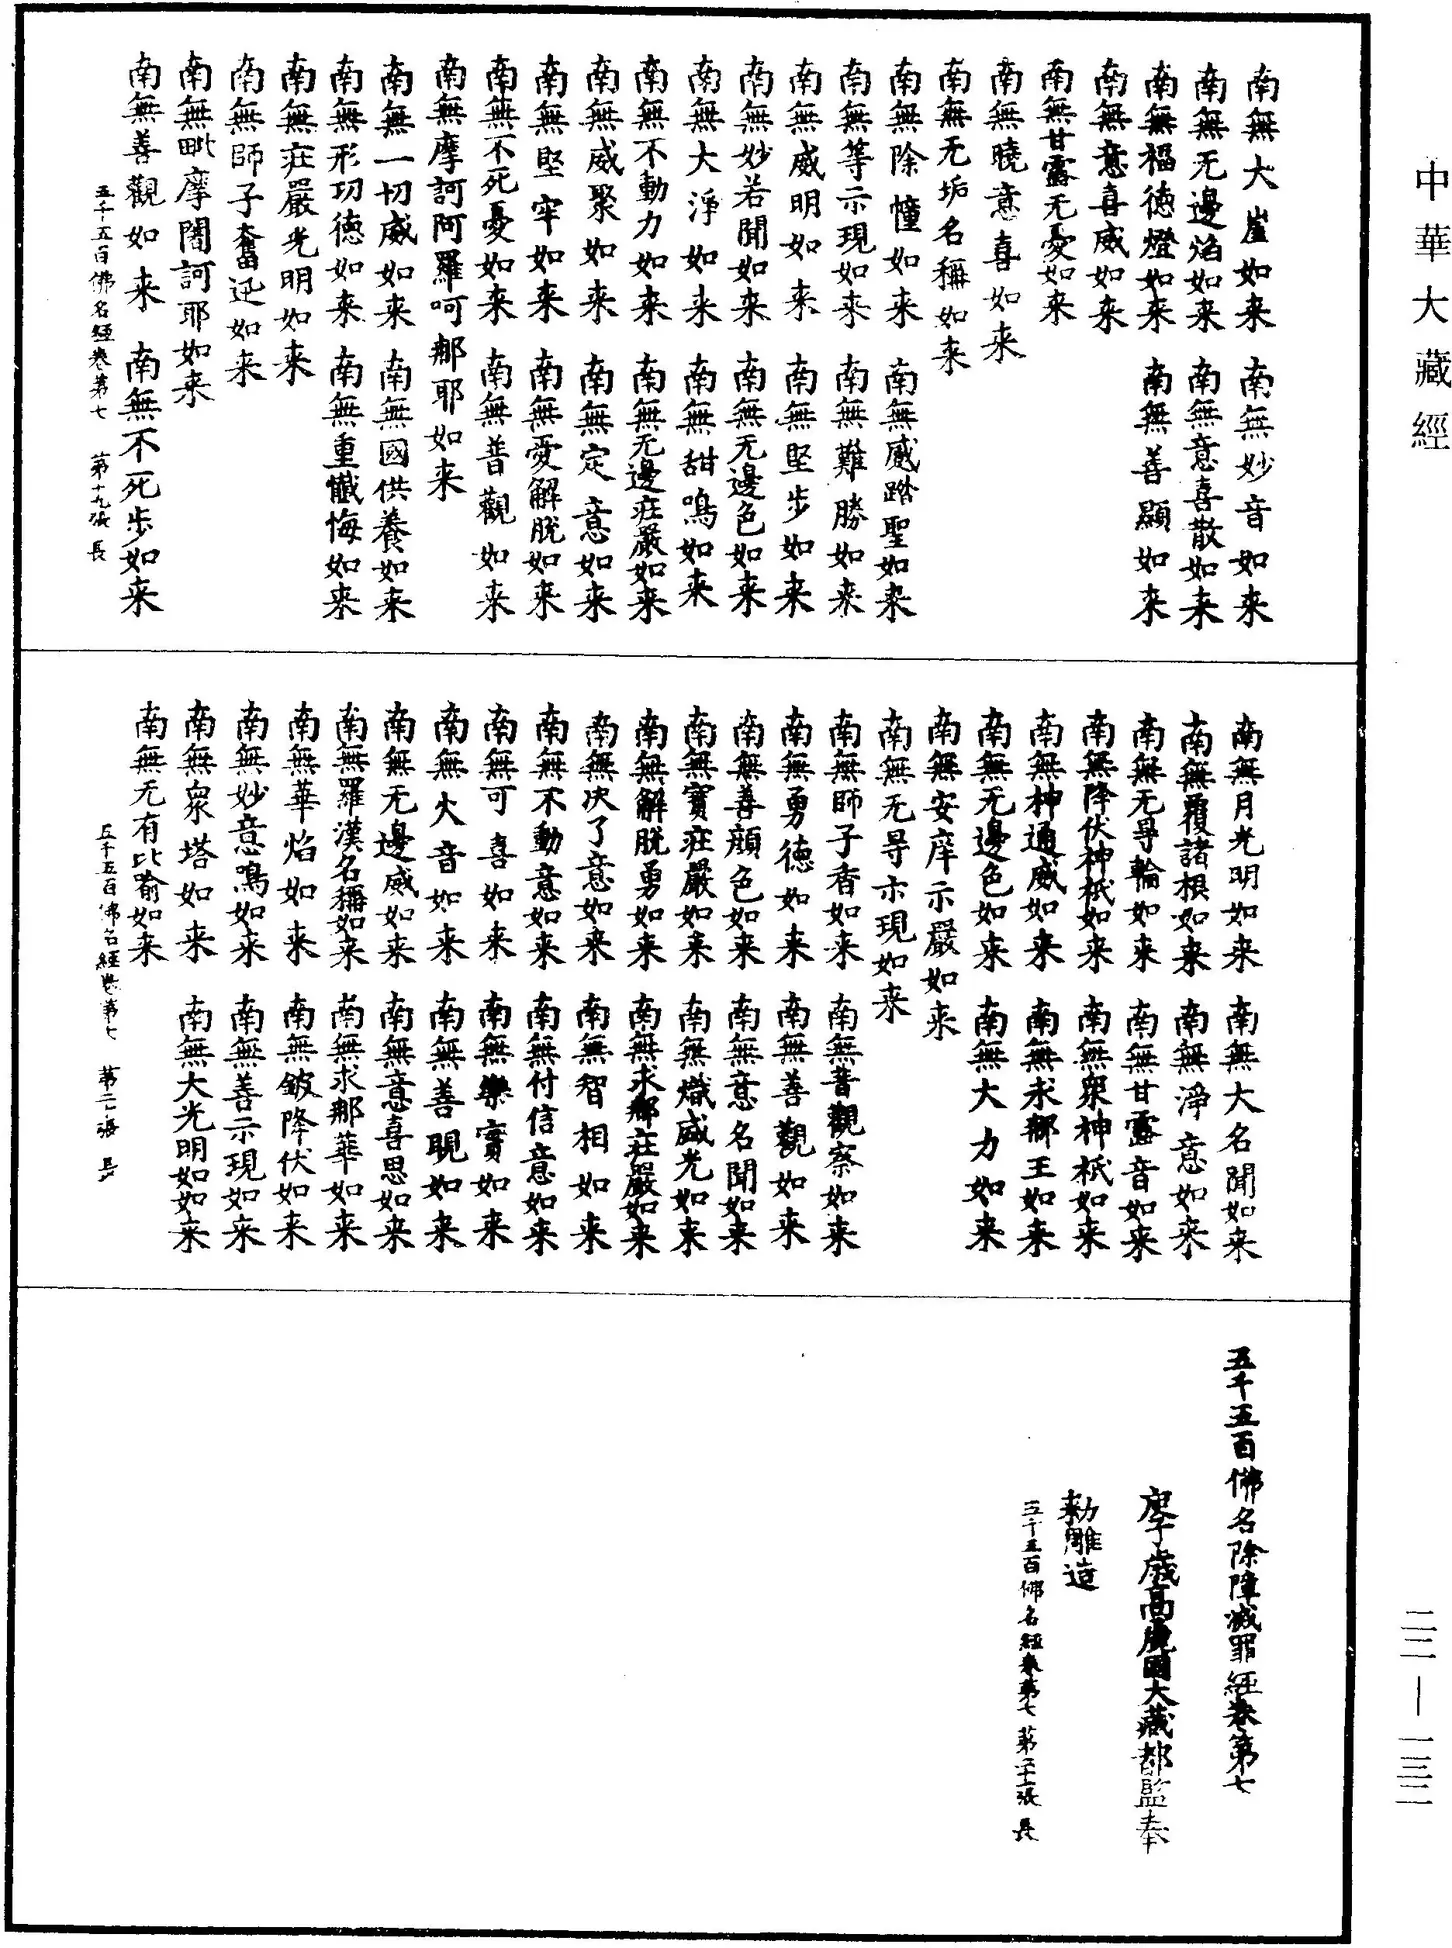 中華大藏經
南無大崖如来 南無妙音如来
南無无邊焰如来 南無意喜散如来
南無福德燈如来 南無善顯如来
南無意喜威如来
南無甘露无憂如来
南無曉意喜如来
南無无垢名稱如来
南無除憧如来 南無威踏聖如来
南無等示現如来 南無難勝如来
南無威明如来 南無堅步如来
南無妙若聞如来 南無无邊色如来
南無大淨如来 南無甜鳴如来
南無不動力如来 南無无邊莊嚴如来
南無威聚如来 南無定意如来
南無堅牢如来 南無愛解脫如来
南無不死憂如来 南無普觀如来
南無摩訶阿羅呵郍耶如来
南無一切威如来 南無國供養如来
南無形功德如来 南無重懺悔如来
南無莊嚴光明如来
南無師子奮迅如来
南無毗摩闍訶耶如来
南無善觀如来 南無不死步如来
五千五百佛名經卷第七 第十九張 長
南無月光明如来 南無大名聞如来
南無覆諸根如来 南無淨意如来
南無无㝵輪如来 南無甘露音如来
南無降伏神祇如来 南無衆神祇如来
南無神通威如来 南無求郍王如来
南無无邊色如来 南無大力如来
南無安庠示嚴如来
南無无㝵示現如来
南無師子香如来 南無普觀察如来
南無勇德如来 南無善觀如来
南無善顏色如来 南無意名聞如来
南無寶莊嚴如来 南無熾威光如来
南無解脫勇如来 南無求郍莊嚴如来
南無决了意如来 南無智相如来
南無不動意如来 南無付信意如来
南無可喜如来 南無樂實如来
南無火音如来 南無善眼如来
南無无邊威如来 南無意喜思如来
南無羅漢名稱如来 南無求郍華如来
南無華焰如来 南無鈹降伏如来
南無妙意鳴如来 南無善示現如来
南無衆塔如来 南無大光明如如来
南無无有比喻如来
五千五百佛名經卷第七 第二十張 長
五千五百佛名除障滅罪經卷第七
歲高麗國大藏都監奉
勑雕造
五千五百佛名經卷第七 第二十一張 長
二二—一三二